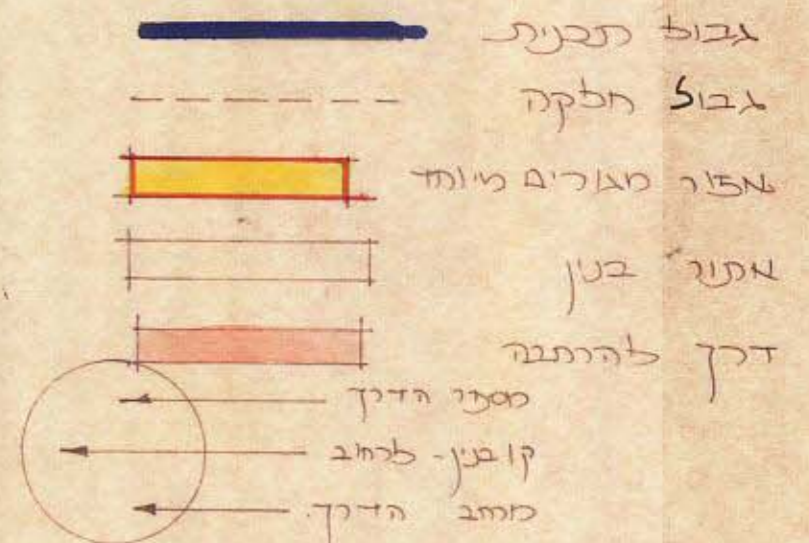 גבול תכנית
גבול חלקה
אזור מגורים מיוחד
אתור בנין
דרך להרחבה
מספר הדרך
קו בנין - לרחוב
מרחב הדרך.